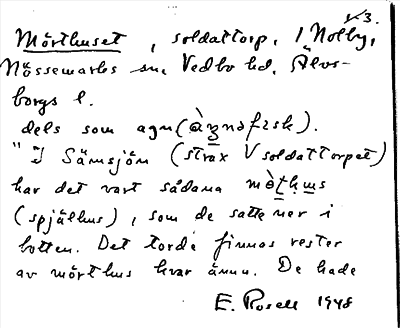 1/3.
Mörthuset, soldattorp, i Nolby,
Nössemarks sn. Vedbo hd, Älvs-
borgs l.
dels som agn (àgnəfɪsk).
"I Sämsjön (strax V soldattorpet)
har det vart sådana mö̀tḥụs
(spjälhus), som de satte ner i
botten. Det torde finnas rester
av mörthus kvar ännu. De hade
E. Rosell 1948